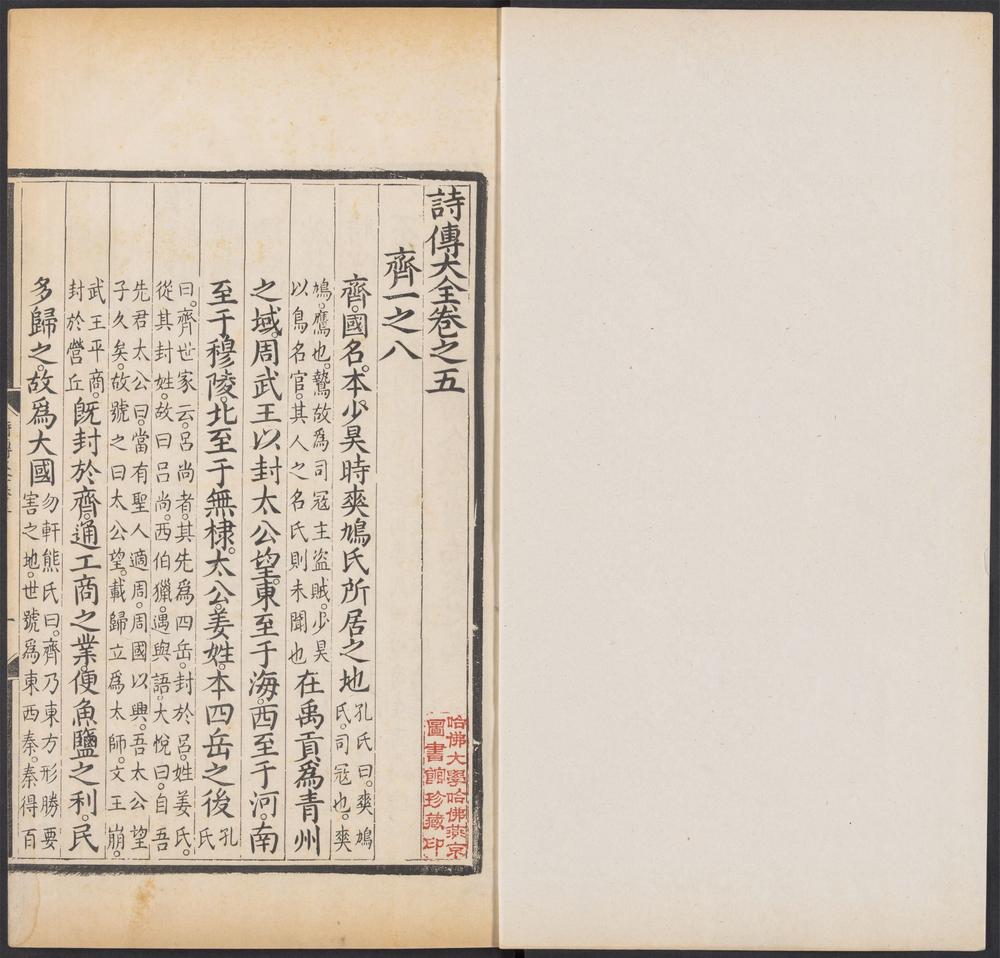 詩傳大全卷之五
哈佛大學哈佛燕京
圖書館珍藏印
齊一之八
齊。國名。本少昊時爽鳩氏所居之地
孔氏曰。爽鳩
氏。司寇也。爽
鳩。鷹也。鷙故爲司寇主盜賊。少昊
以鳥名官。其人之名氏則未聞也
在禹貢。爲青州
之域。周武王以封太公望。東至于海。西至于河。南
至于穆陵。北至于無棣。太公。姜姓。本四岳之後
孔
氏
曰。齊世家云。呂尚者。其先爲四岳。封於呂。姓姜氏。
從其封姓。故曰呂尚。西伯獵。遇與語。大悅曰。自吾
先君太公曰。當有聖人適周。周國以興。吾太公望
子久矣。故號之曰太公望。載歸立爲太師。文王崩。
武王平商。
封於營丘
既封於齊。通工商之業。便魚鹽之利。民
多歸之。故爲大國
勿軒熊氏曰。齊乃東方形勝要
害之地。世號爲東西秦。秦得百